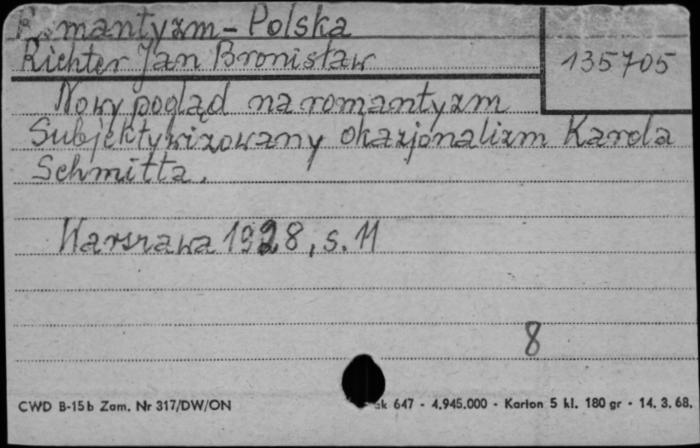 Romantyzm - Polska
Richter Jan Bronisław
135705
Nowy pogląd na romantyzm
Subjektywizowany okazjonalizm Karola
Schmitta.
Warszawa 1928, s. 11
8
CWD B-15b Zam. Nr 317/DW/ON
647 - 4.945.000 - Karton 5 kl. 180 gr - 14. 3. 68.